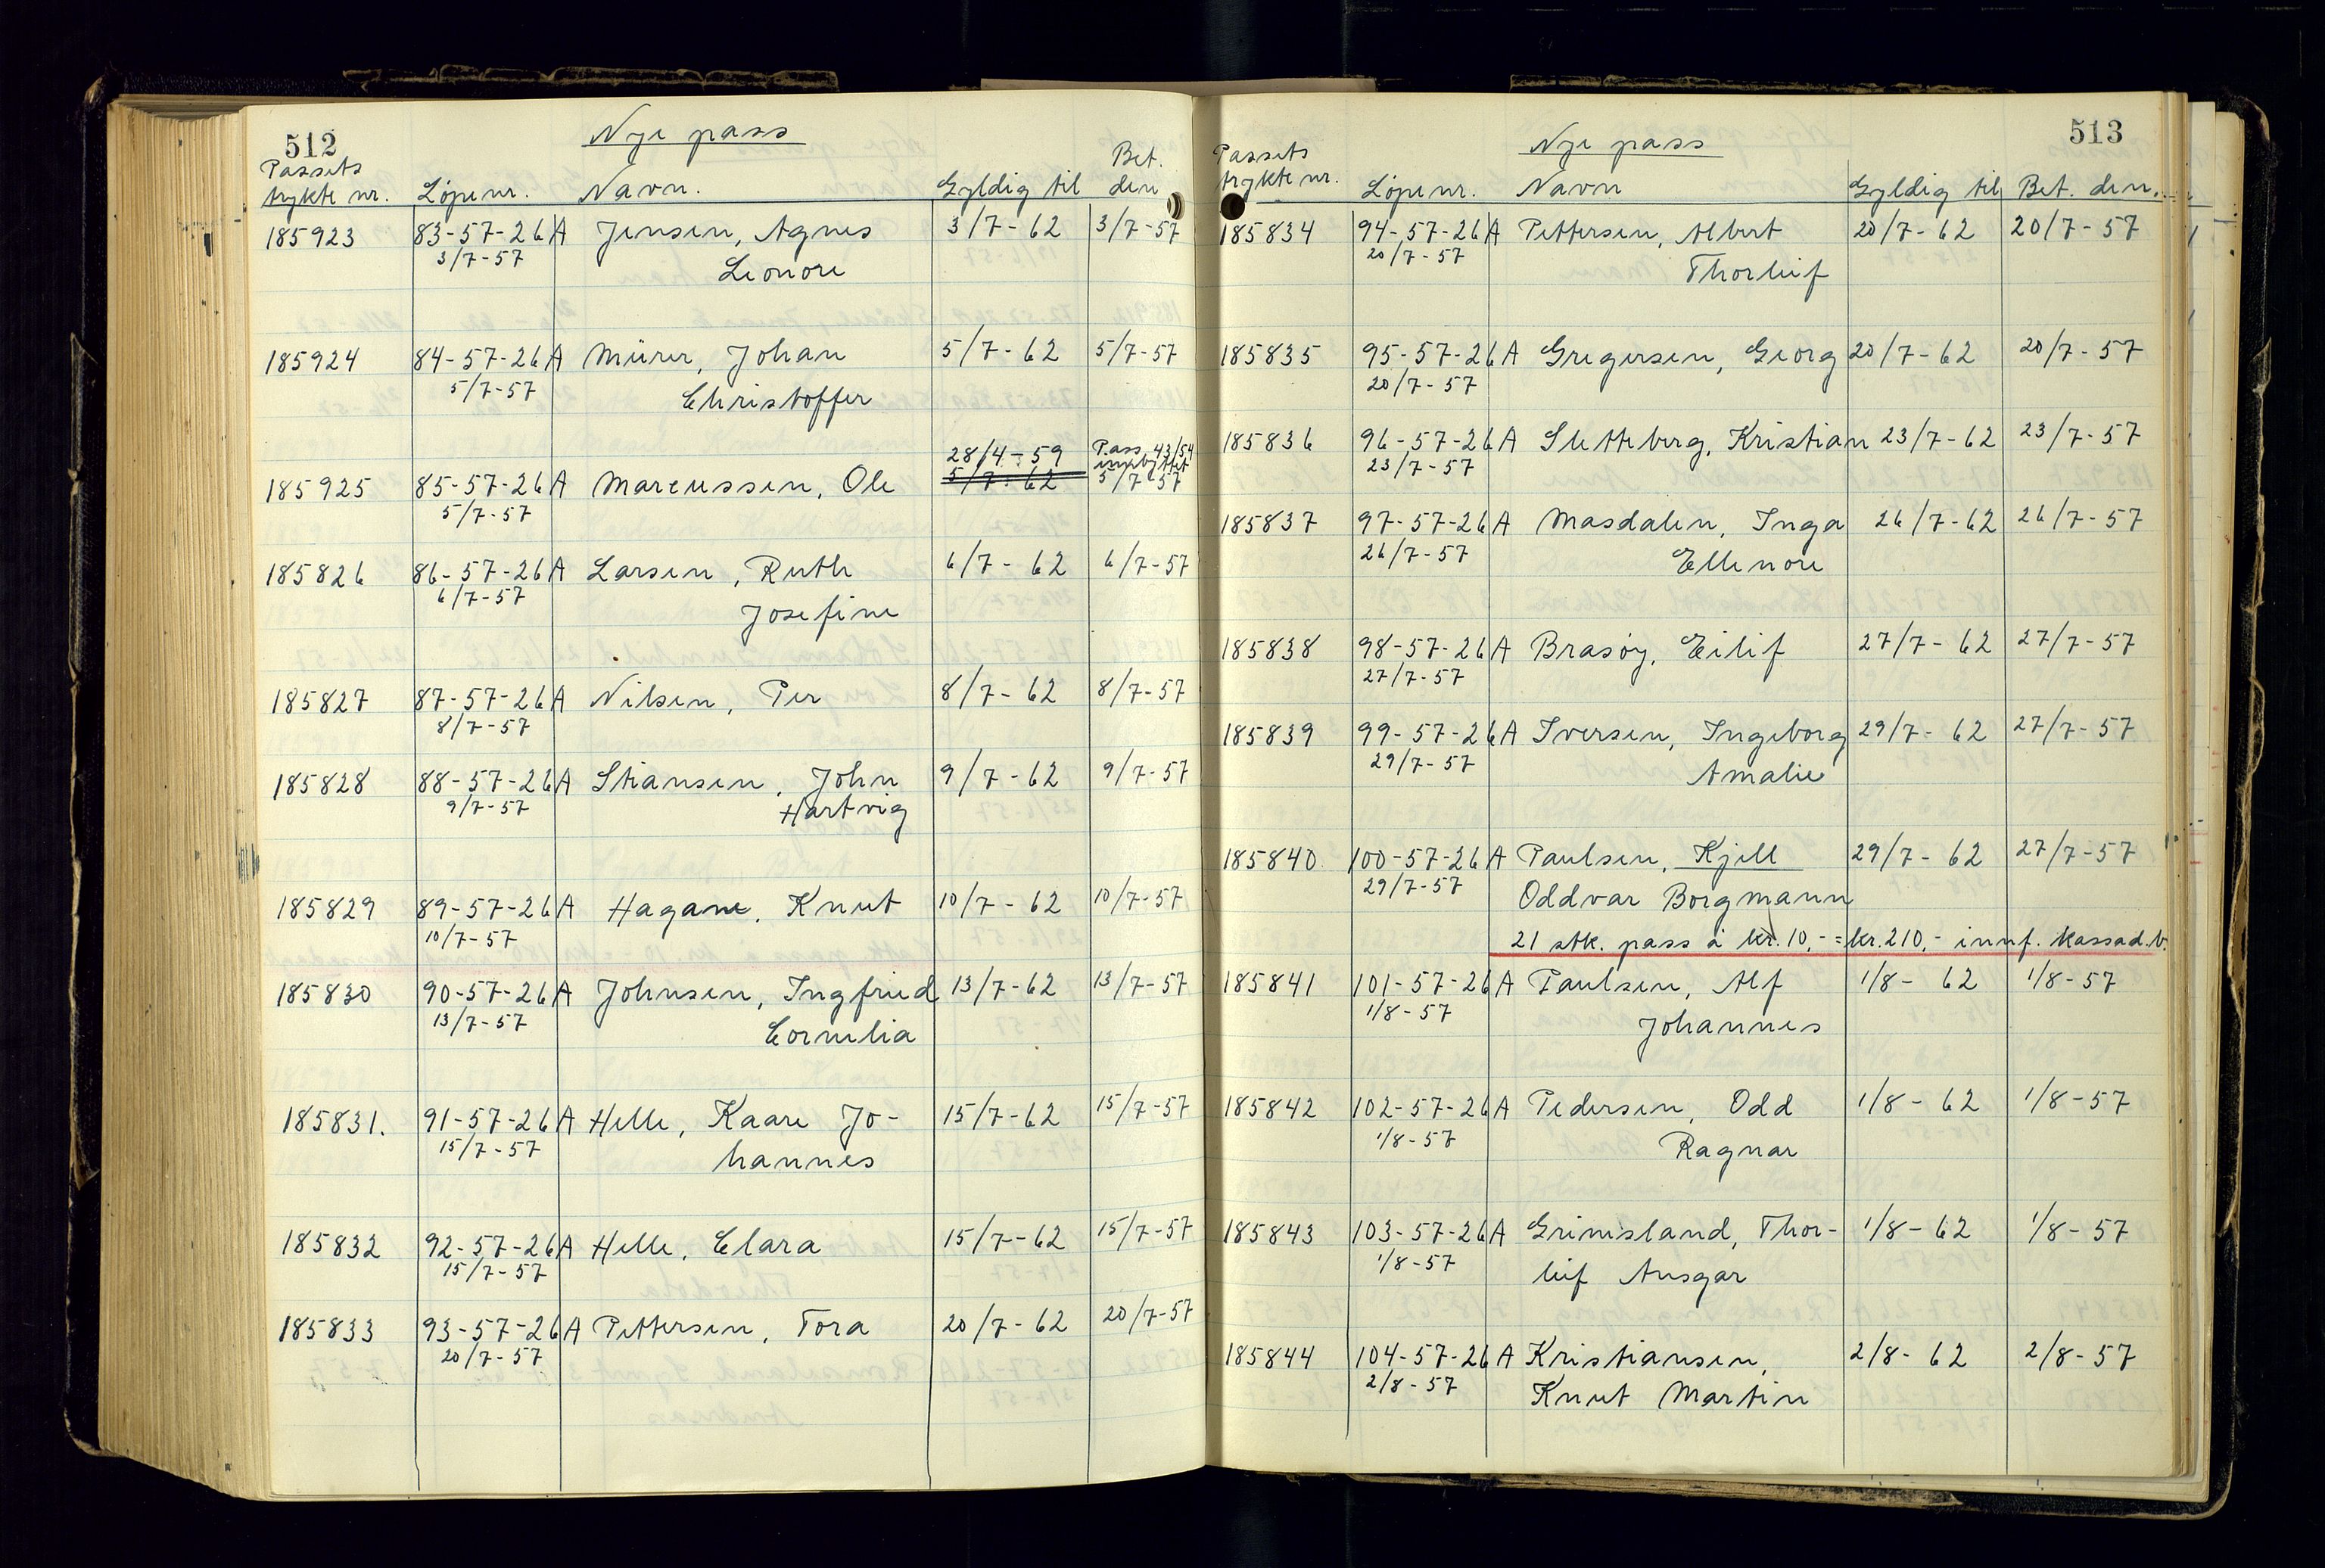 512
Nye pass
Passets
trykte nr. Løpenr. Navn. Gyldig til Bet. den
185923 83-57-26A Jensen, Agnes 3/7-62 3/7-57
3/7-57 Leonore
185924 84-57-26A Mürer, Johan 5/7-62 5/7-57
5/7-57 Christoffer
28/4-59 Pass 43/54
innbyttet
185925 85-57-26A Marcussen, Ole 5/7-62 5/7-57
5/7-57
185826 86-57-26A Larsen, Ruth 6/7-62 6/7-57
6/7-57 Josefine
185827 87-57-26A Nilsen, Per 8/7-62 8/7-57
8/7-57
185828 88-57-26A Stiansen, John 9/7-62 9/7-57
9/7-57 Hartvig
185829 89-57-26A Hagane, Knut 10/7-62 10/7-57
10/7-57
185830 90-57-26A Johnsen, Ingfried 13/7-62 13/7-57
13/7-57 Cornelia
185831. 91-57-26A Helle, Kaare Jo- 15/7-62 15/7-57
15/7-57 hannes
185832 92-57-26A Helle, Clara 15/7-62 15/7-57
15/7-57
185833 93-57-26A Pettersen, Tora 20/7-62 20/7-57
20/7-57
513
Nye pass
Passets
trykte nr. Løpenr. Navn Gyldig til Bet. den.
185834 94-57-26A Pettersen, Albert 20/7-62 20/7-57
20/7-57 Thorleif
185835 95-57-26A Gregersen, Georg 20/7-62 20/7-57
20/7-57
185836 96-57-26A Sletteberg, Kristian 23/7-62 23/7-57
23/7-57
185837 97-57-26A Masdalen, Inga 26/7-62 26/7-57
26/7-57 Ellenore
185838 98-57-26A Brasøy, Eilif 27/7-62 27/7-57
27/7-57
185839 99-57-26A Iversen, Ingeborg 29/7-62 27/7-57
29/7-57 Amalie
185840. 100-57-26A Paulsen, Kjell 29/7-62 27/7-57
29/7-57 Oddvar Borgmann
21 stk. pass á kr. 10,- = kr. 210,- innf. kassad.b.
185841 101-57-26A Paulsen, Alf 1/8-62 1/8-57
1/8-57 Johannes
185842 102-57-26A Pedersen, Odd 1/8-62 1/8-57
1/8-57 Ragnar
185843 103-57-26A Grimsland, Thor- 1/8-62 1/8-57
1/8-57 leif Ansgar
185844 104-57-26A Kristiansen, 2/8-62 2/8-57
2/8-57 Knut Martin